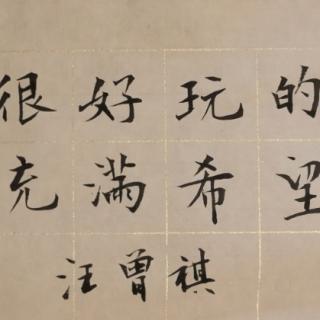 很好玩的
充满希望
汪曾祺